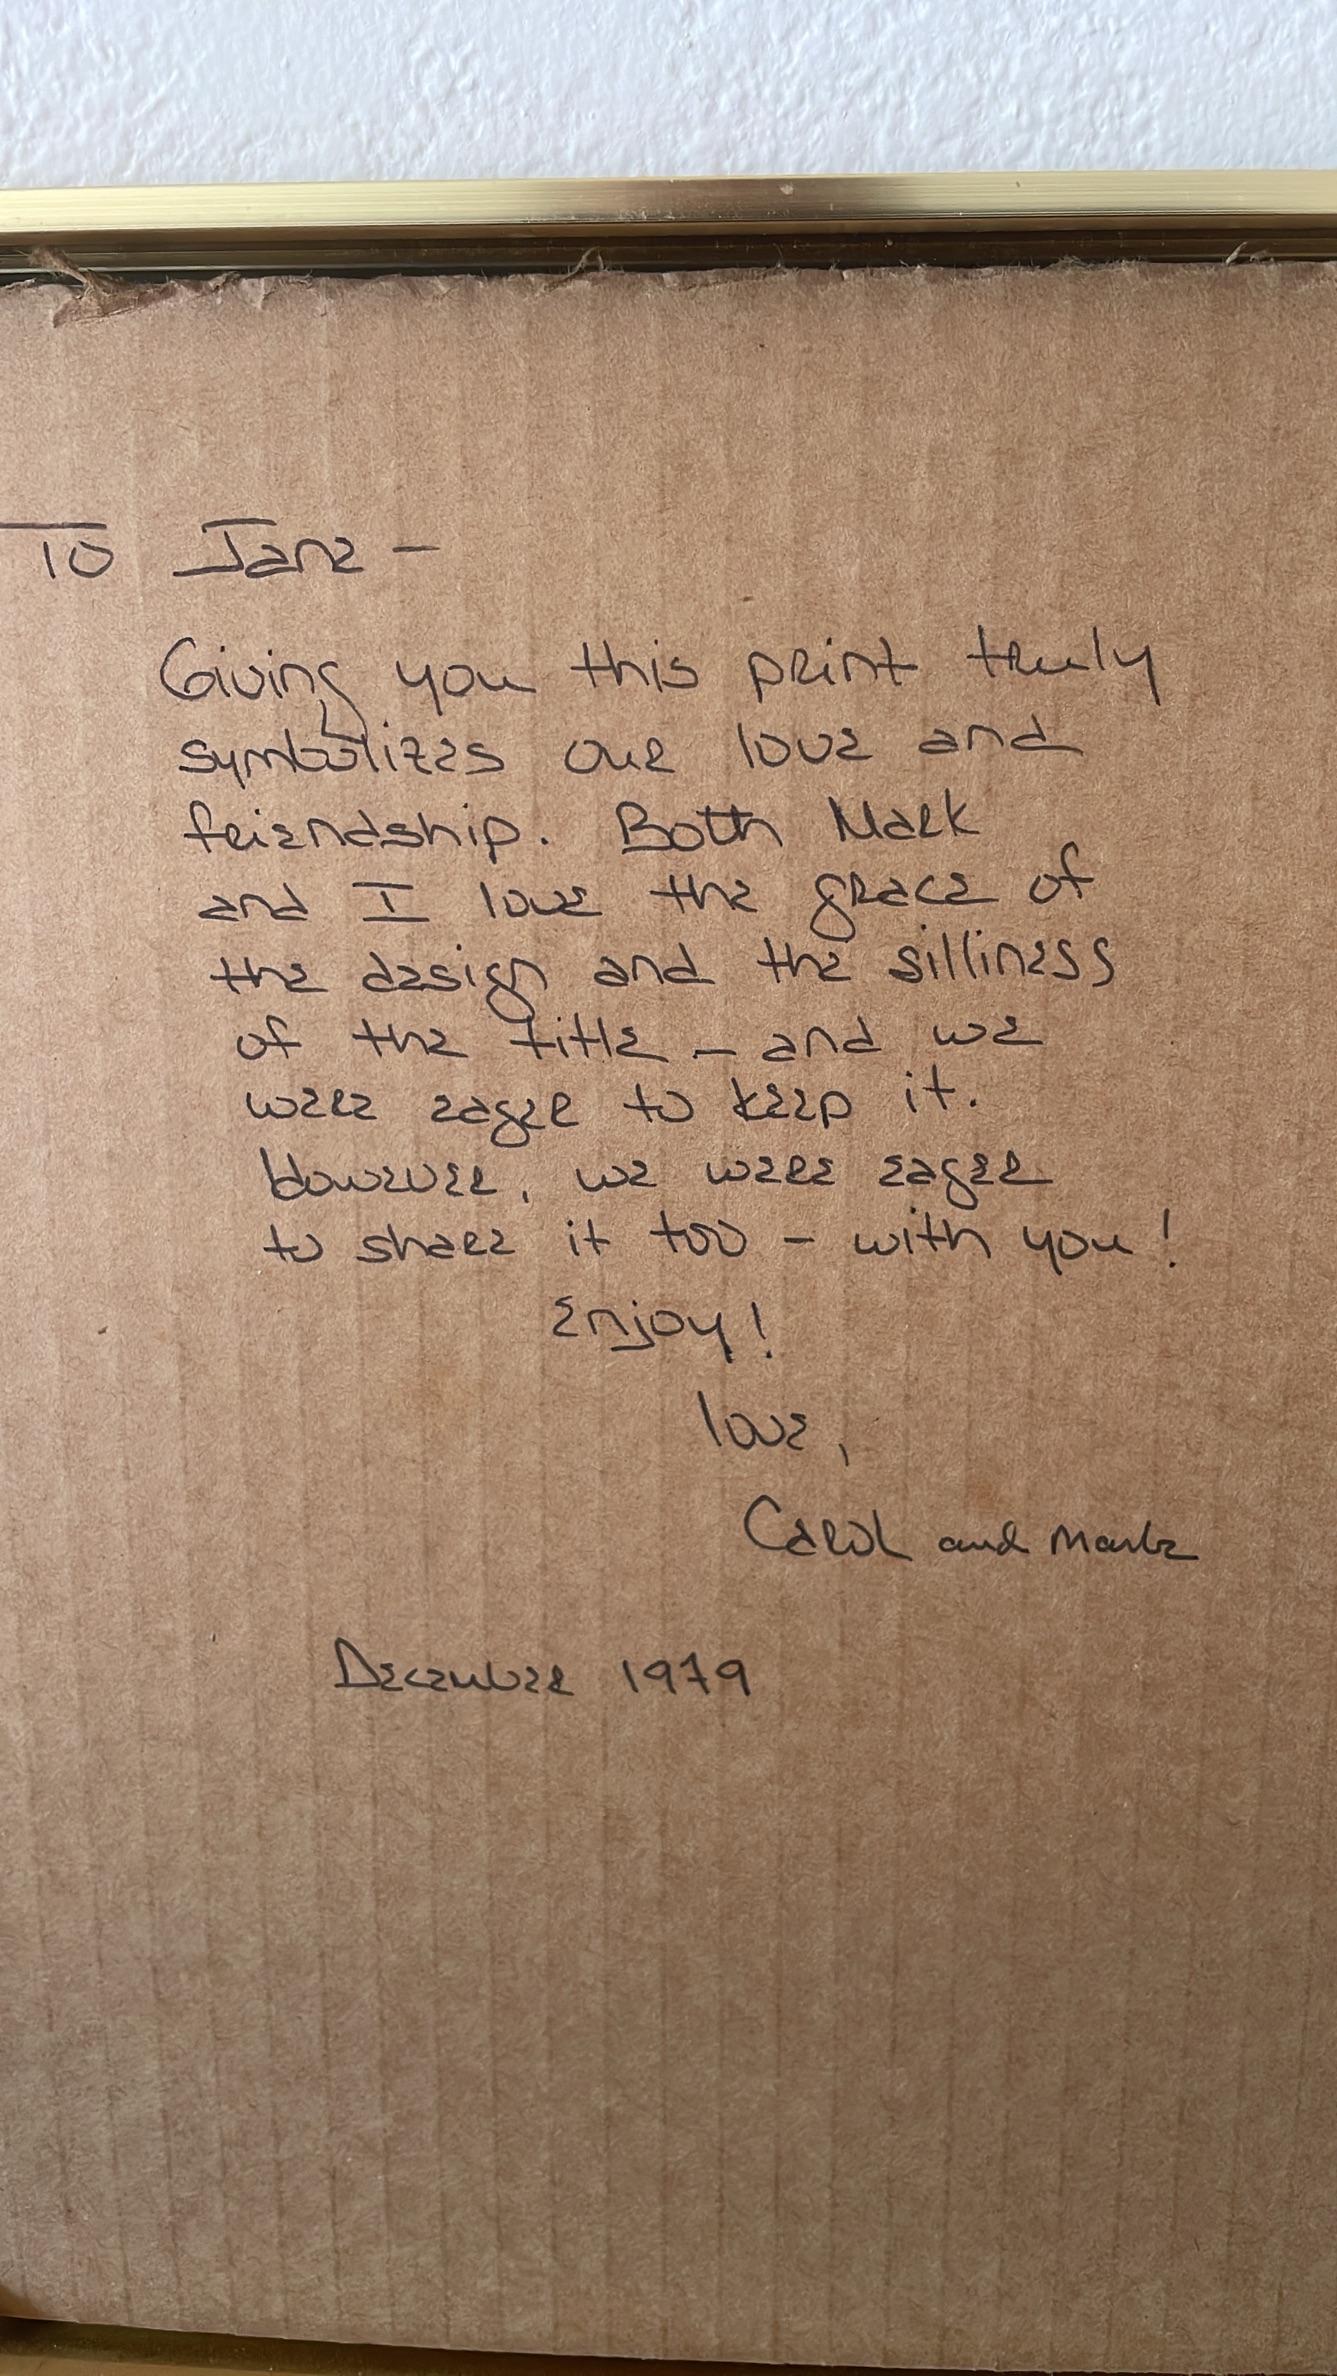 To Jane -
Giving you this print truly
symbolizes our love and
friendship. Both Mark
and I love the grace of
the design and the silliness
of the title - and we
were eager to keep it.
However, we were eager
to share it too - with you!
Enjoy!
love,
Carol and Mark
December 1979